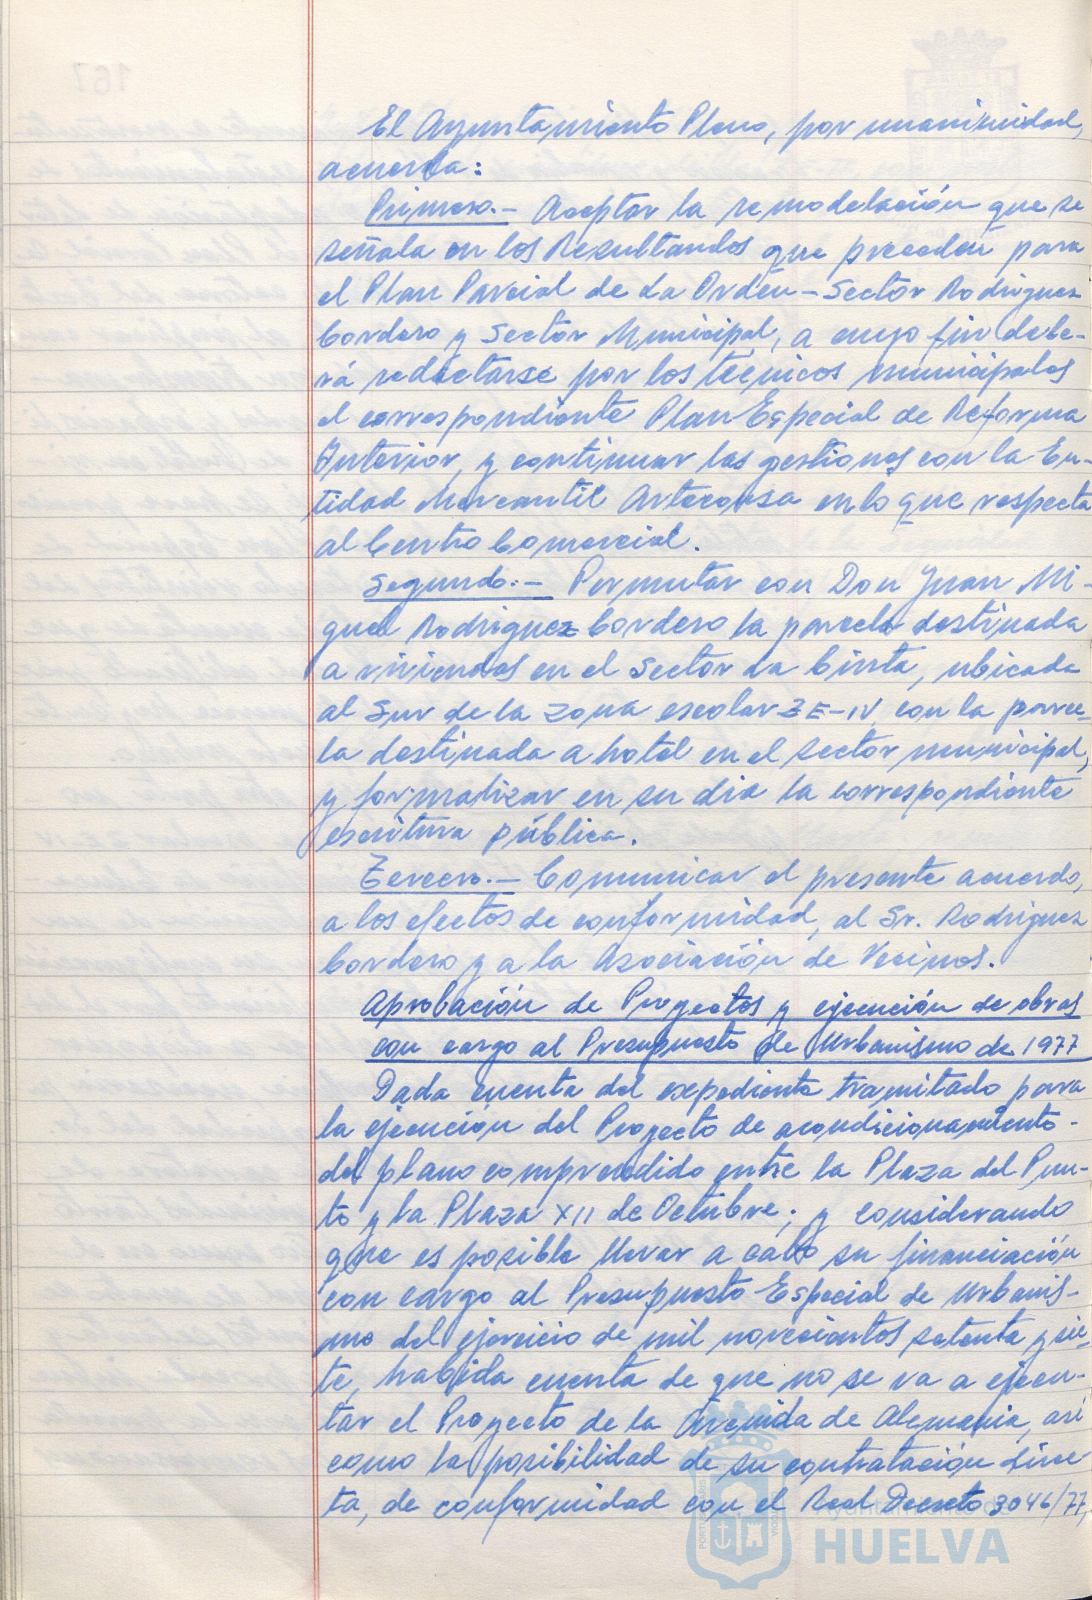 El Ayuntamiento Pleno, por unanimidad,
acuerda:
Primero.- Aceptar la remodelación que se
señala en los Resultandos que preceden para
el Plan Parcial de La Orden - Sector Rodriguez
Cordero y Sector Municipal, a cuyo fin debe-
rá redactarse por los técnicos municipales
el correspondiente Plan Especial de Reforma
Interior, y continuar las gestiones con la En-
tidad Mercantil en lo que respecta
al Centro Comercial.
Segundo.- Permutar con Don Juan Mi-
guel Rodriguez Cordero la parcela destinada
a viviendas en el Sector La Cinta, ubicada
al Sur de la zona escolar ZE-IV, con la parce
la destinada a hotel en el sector municipal,
y formalizar en su dia la correspondiente
escritura pública.
Tercero.- Comunicar el presente acuerdo,
a los efectos de conformidad, al Sr. Rodriguez
Cordero y a la Asociación de Vecinos.
Aprobación de Proyectos y ejecución de obras
con cargo al Presupuesto de Urbanismo de 1977
Dada cuenta del expediente tramitado para
la ejecución del Proyecto de acondicionamiento -
del plano comprendido entre la Plaza del Pun-
to y la Plaza XII de Octubre; y considerando
que es posible llevar a cabo su financiación
con cargo al Presupuesto Especial de Urbanis-
mo del ejercicio de mil novecientos setenta y sie-
te, habida cuenta de que no se va a ejecu-
tar el Proyecto de la Avenida de Alemania, asi
como la posibilidad de su contratación direc
ta, de conformidad con el Real Decreto 3046/77,
Ayuntamiento de
HUELVA